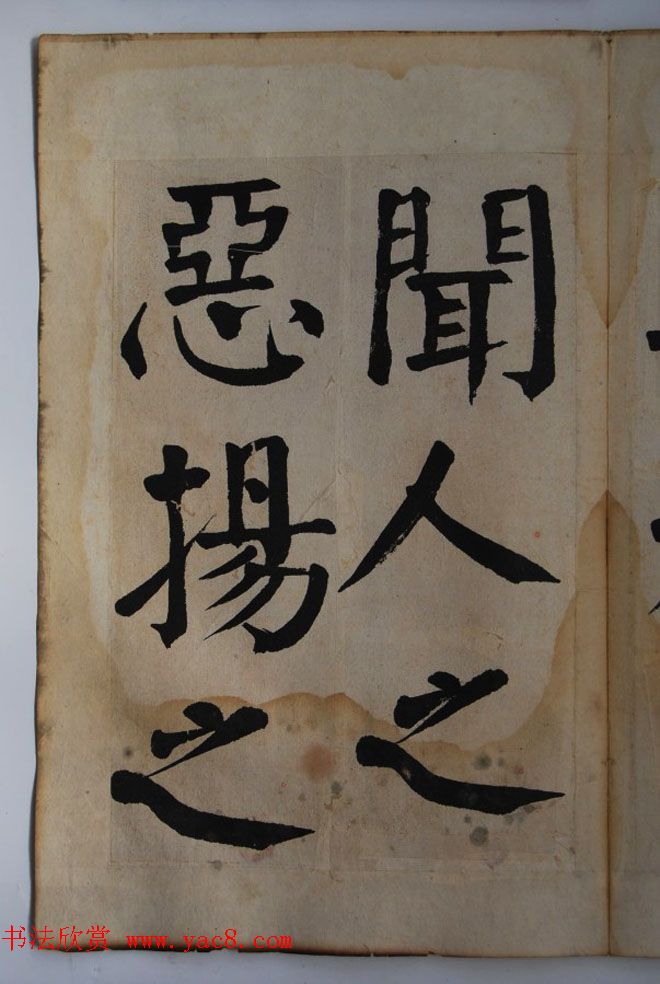 聞人之
惡揚之
书法欣赏 www.yac8.com